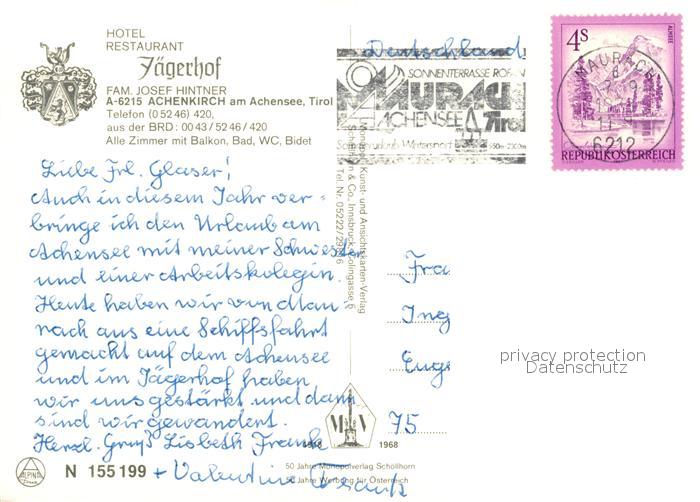 HOTEL
RESTAURANT
Jägerhof
FAM. JOSEF HINTNER
A-6215 ACHENKIRCH am Achensee, Tirol
Telefon (0 52 46) 420,
aus der BRD: 00 43 / 52 46 / 420
Alle Zimmer mit Balkon, Bad, WC, Bidet
Deutschland
SONNENTERRASSE ROFAN
MAURACH
ACHENSEE Tirol
Wintersport
4S
ALMSEE
MAURACH
6212
REPUBLIK ÖSTERREICH
Liebe Frl. Glaser!
Auch in diesem Jahr ver-
bringe ich den Urlaub am
Achensee mit meiner Schwester
und einer Arbeitskolegin.
Heute haben wir von Mau
rach aus eine Schiffsfahrt
gemacht auf dem Achensee
und im Jägerhof haben
wir uns gestärkt und dann
sind wir gewandert.
Herzl. Gruß Lisbeth Frank
+ Valentine Frank
Kunst- und Ansichtskarten-Verlag
& Co., Innsbruck,
Tel. Nr. 05222/
Fra
Ing
Euge
75
privacy protection
Datenschutz
M V
1968
ALPINA
N 155 199
50 Jahre Monopolverlag Schöllhorn
50 Jahre Werbung für Österreich